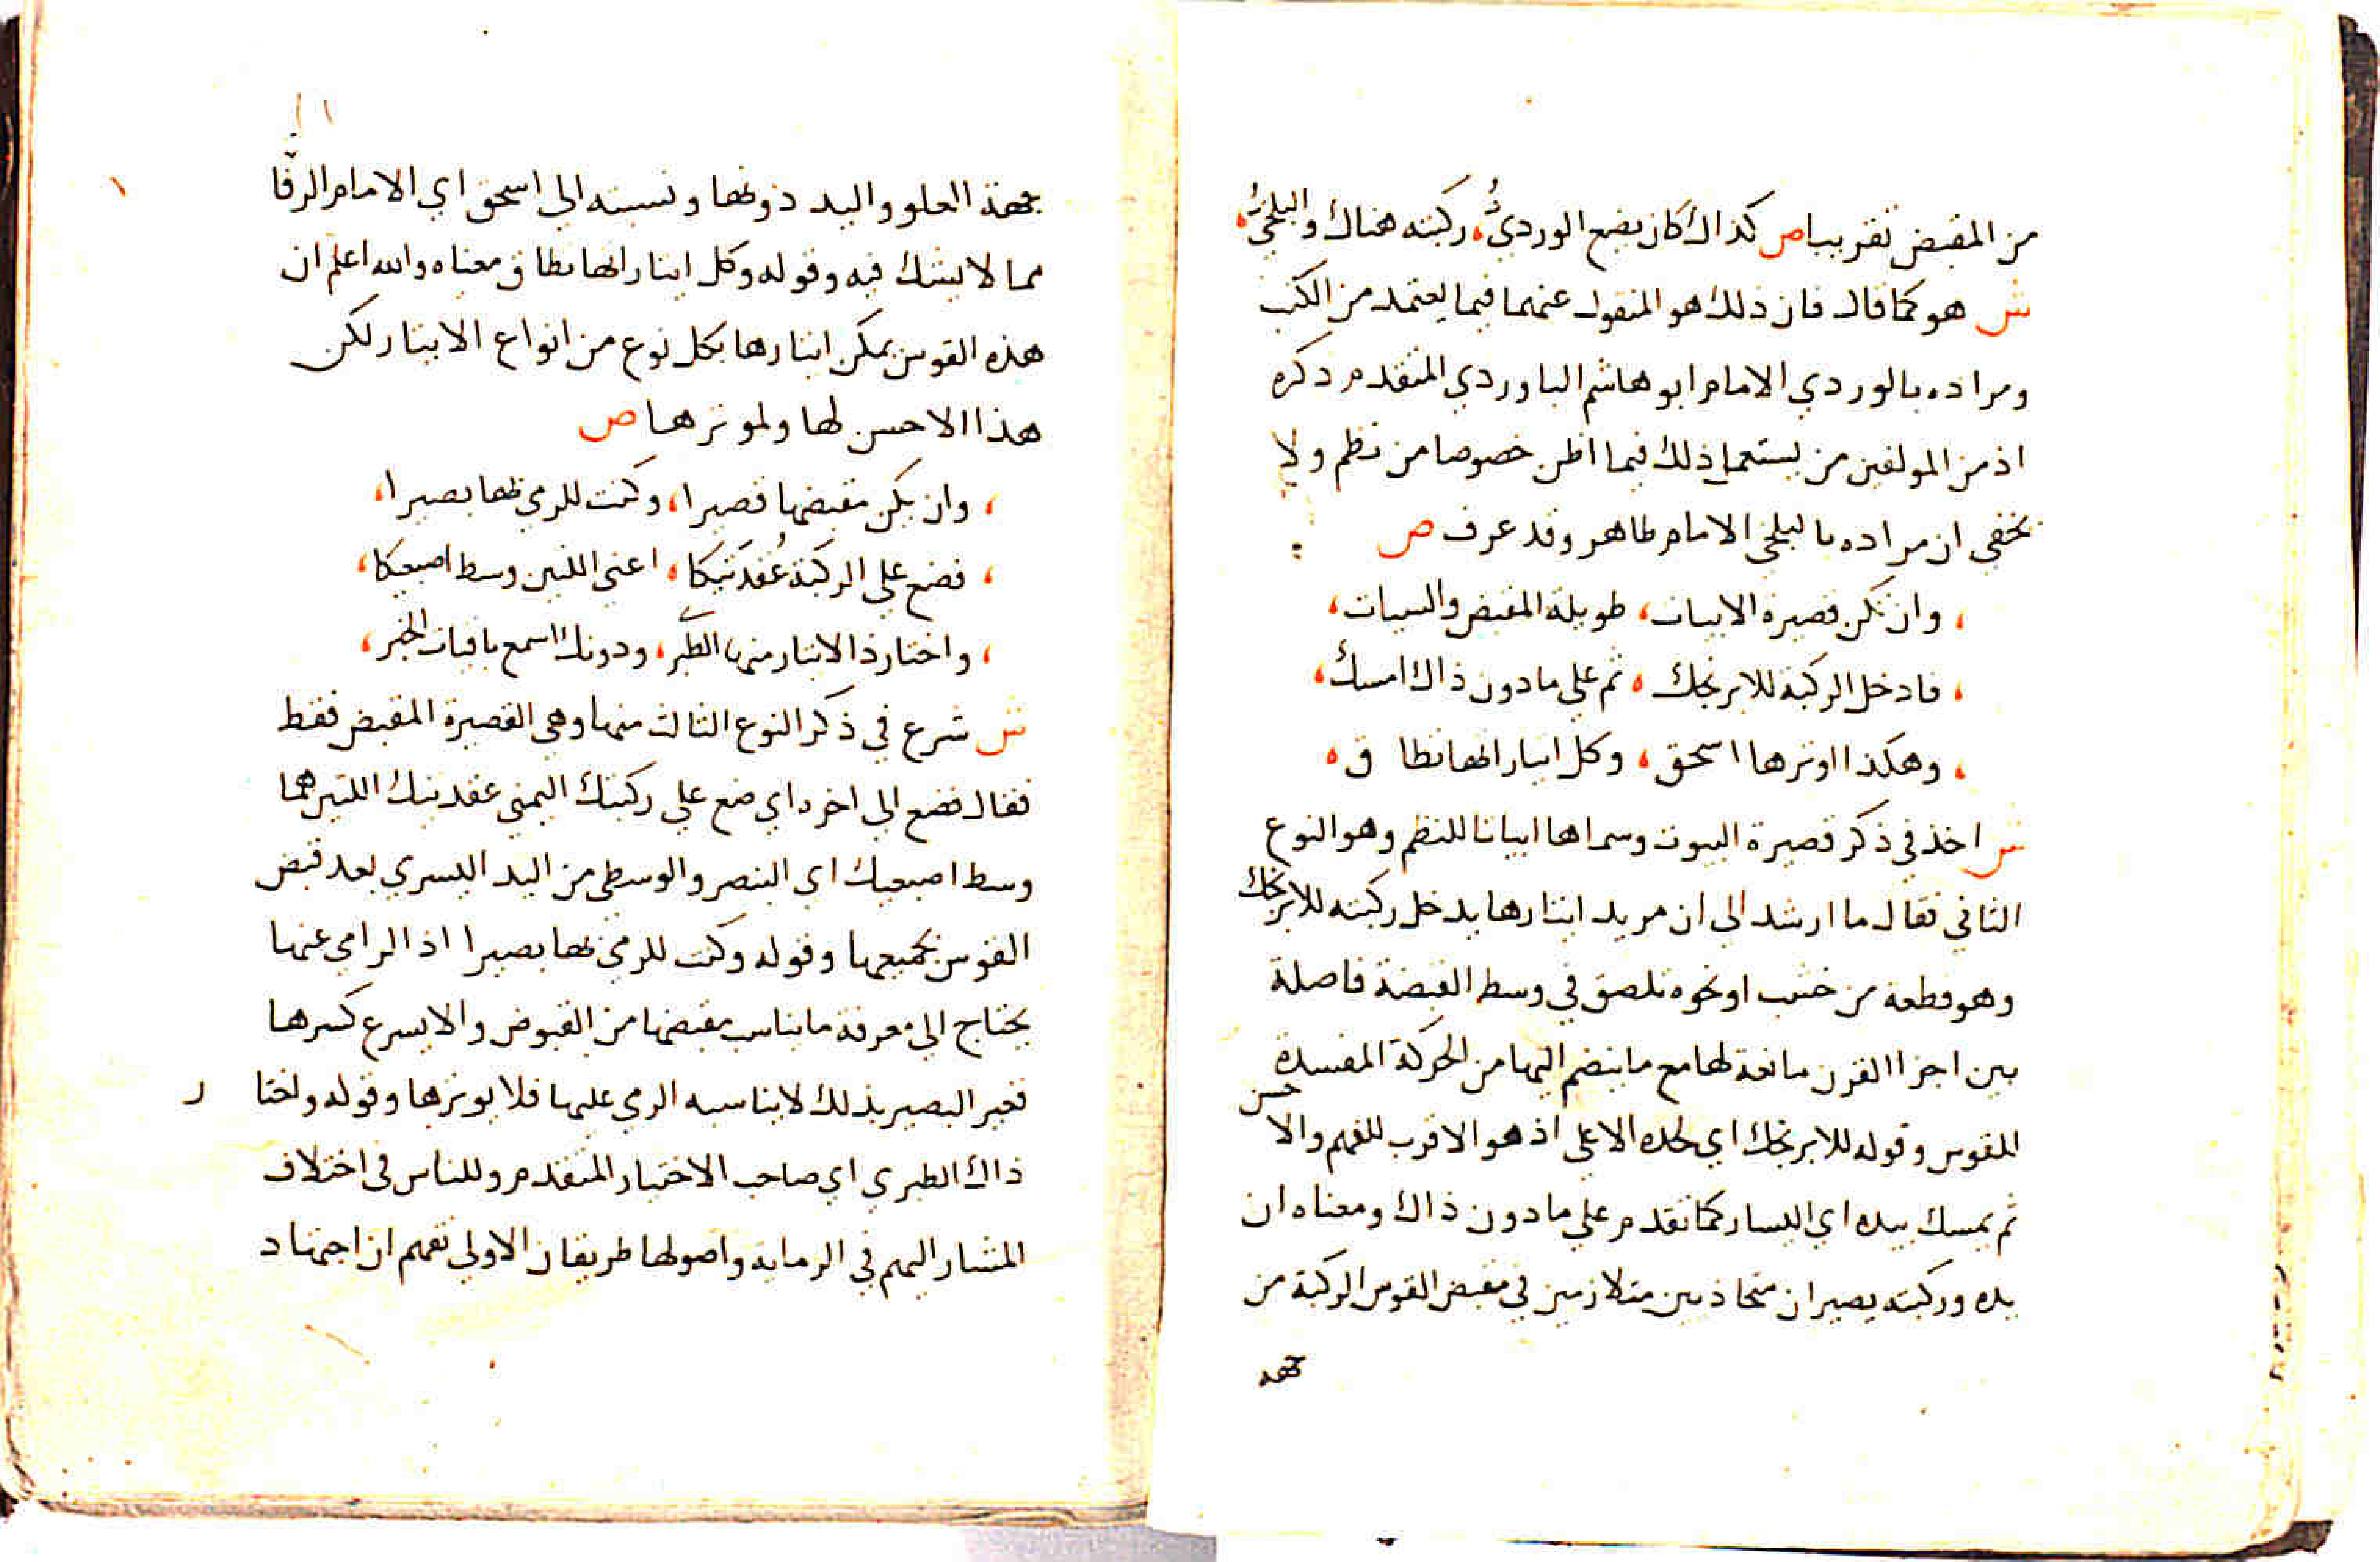 من المقبض تقريبا ص كذاك كان يضع الوردي ركبته هناك والبلخي
ش هو كما قال فان ذلك هو المنقول عنهما فيما يعتمد من الكتب
ومراده بالوردي الامام ابو هاشم الباوردي المتقدم ذكره
اذ من المولفين من يستعمل ذلك فيما اظن خصوصا من نظم ولا
يخفى ان مراده بالبلخي الامام طاهر وقد عرف ص
وان تكن قصيرة الابيات، طويلة المقبض والسيات،
فادخل الركبة للابرنجك، ثم على مادون ذاك امسك،
وهكذا اوترها اسحق، وكل ايتار لها نطاق
ش اخذ في ذكر قصيرة البيوت وسماها ابياتا للنظم وهو النوع
الثاني فقال ما ارشد الى ان مريد ايتارها يدخل ركبته للابرنجك
وهو قطعة من خشب او نحوه تلصق في وسط القبضة فاصلة
بين اجزا القرن مانعة لها مع ما ينضم اليها من الحركة المفسدة
للقوس وقوله للابرنجك اي لحده الاعلى اذ هو الاقرب للفهم والاحسن
ثم يمسك بيده اي اليسار كما تقدم على مادون ذاك ومعناه ان
يده وركبته يصيران متحاذيين متلازمين في مقبض القوس الركبة من
جهة
جهة العلو واليد دونها ونسبته الى اسحق اي الامام الرفا
مما لا يشك فيه وقوله وكل ايتار لها نطاق معناه والله اعلم ان
هذه القوس يمكن ايتارها بكل نوع من انواع الايتار لكن
هذا الاحسن لها ولموترها ص
، وان يكن مقبضها قصيرا، وكنت للرمي لها بصيرا،
، فضع على الركبة عُقدَتيكا، اعني اللتين وسط اصبعيكا،
، واختار ذا الايتار منها الطبر، ودونك اسمع باقيات الخبر،
ش شرع في ذكر النوع الثالث منها وهي القصيرة المقبض فقط
فقال فضع الى اخره اي ضع على ركبتك اليمنى عقدتيك اللتين هما
وسط اصبعيك اي البنصر والوسطى من اليد اليسرى بعد قبض
القوس بجميعها وقوله وكنت للرمي لها بصيرا اذ الرامي عنها
يحتاج الى معرفة ما يناسب مقبضها من القبوض والا يسرع كسرها
فغير البصير بذلك لا يناسبه الرمي عليها فلا يوترها وقوله واختار
ذاك الطبري اي صاحب الاختيار المتقدم وللناس في اختلاف
المشار اليهم في الرماية واصولها طريقان الاولى تفهم ان اجتهاد